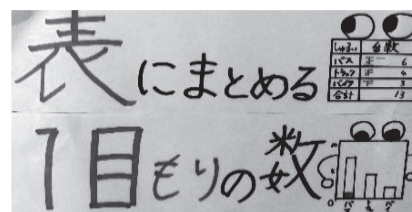 表にまとめる
しゅるい 台数
バス 正一 6
トラック 正 4
バイク 下 3
合計 13
1目もりの数